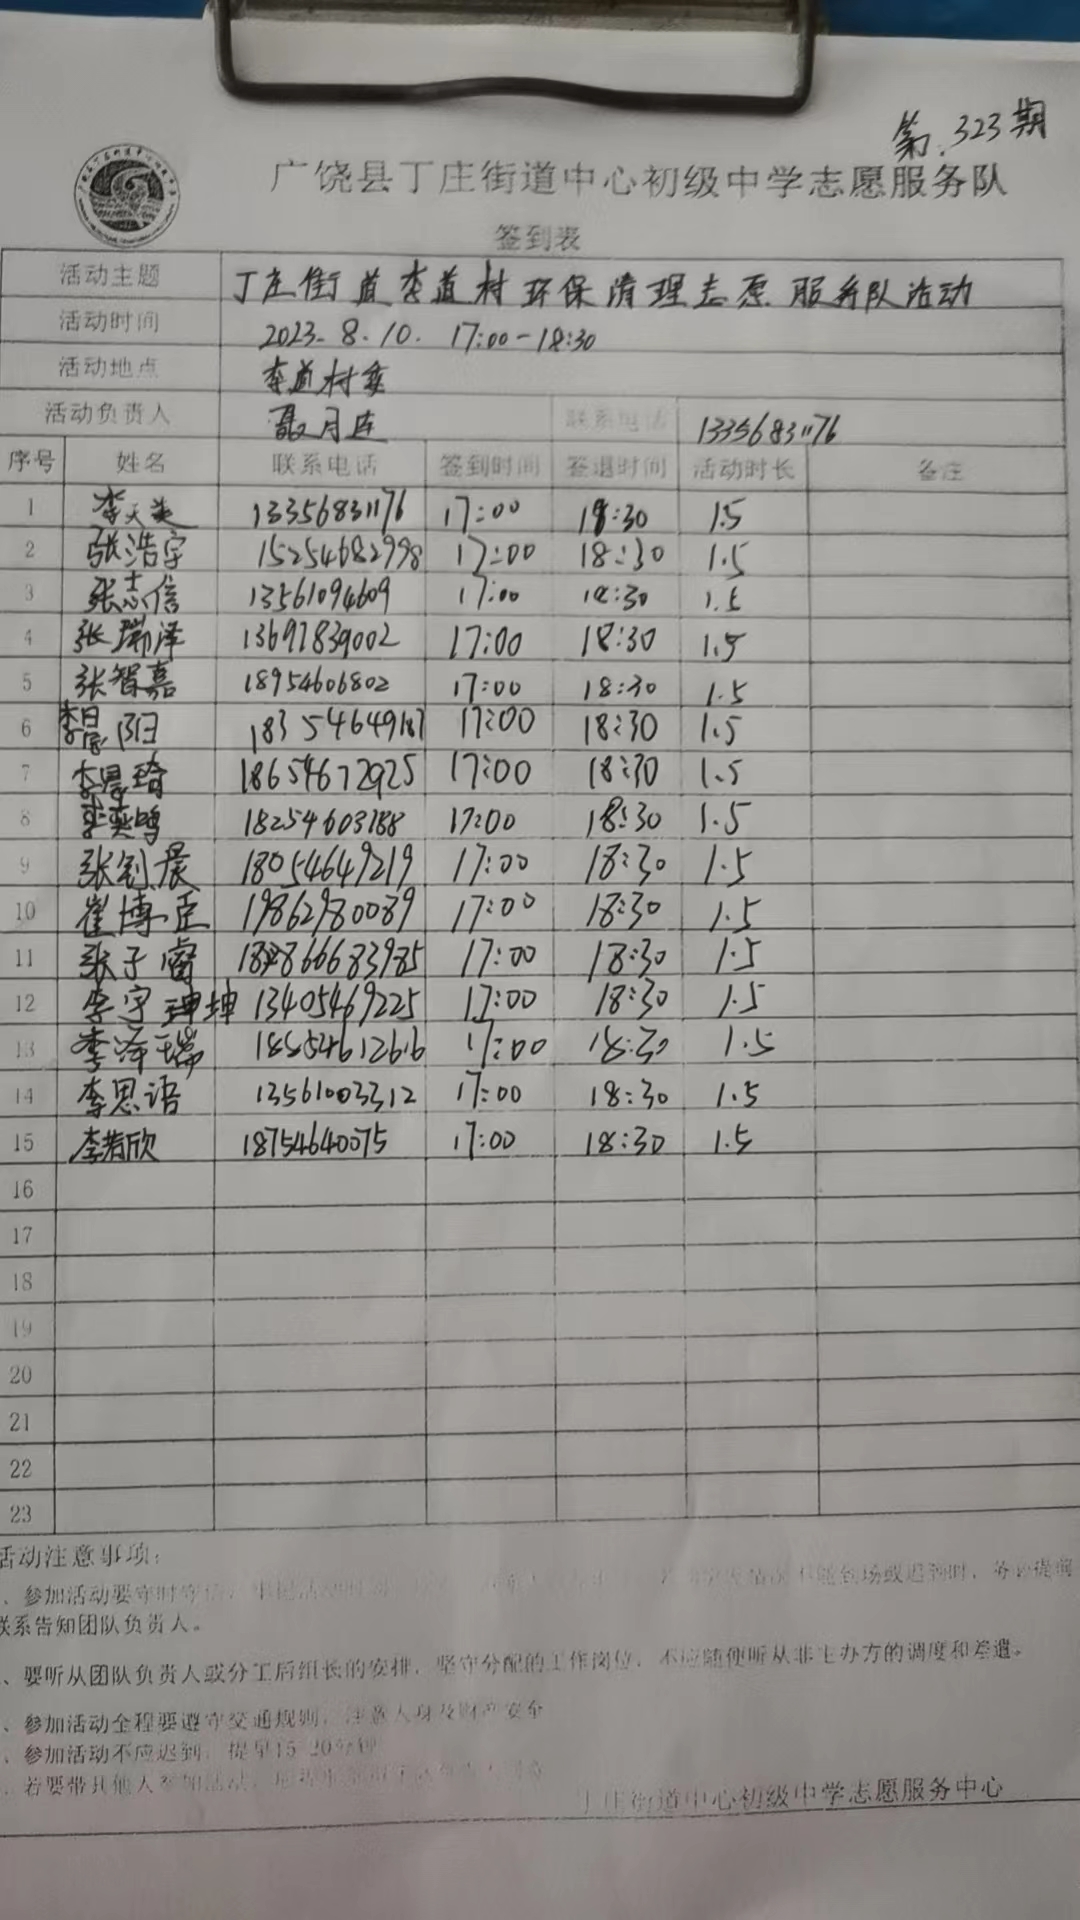 第.323期
广饶县丁庄街道中心初级中学志愿服务队
签到表
活动主题 丁庄街道李道村环保清理志愿服务队活动
活动时间 2023.8.10. 17:00-18:30
活动地点 李道村委
活动负责人 聂月连 联系电话 13356831176
序号 姓名 联系电话 签到时间 签退时间 活动时长 备注
1 李天 13356831176 17:00 18:30 1.5
2 张浩宇 15254682998 17:00 18:30 1.5
3 张志信 13561094609 17:00 18:30 1.5
4 张瑞泽 13697839002 17:00 18:30 1.5
5 张智嘉 18954606802 17:00 18:30 1.5
6 李晨阳 18354649187 17:00 18:30 1.5
7 李晨琦 18654672925 17:00 18:30 1.5
8 李奕鸣 18254603188 17:00 18:30 1.5
9 张钊晨 18054649219 17:00 18:30 1.5
10 崔博臣 19862980089 17:00 18:30 1.5
11 张子睿 17:00 18:30 1.5
12 李宇珅坤 13405469225 17:00 18:30 1.5
13 李泽瑞 18654612616 17:00 18:30 1.5
14 李思语 13561003312 17:00 18:30 1.5
15 李若欣 18754640075 17:00 18:30 1.5
16
17
18
19
20
21
22
23
活动注意事项：
、参加活动要守时守信， 到场或迟到时，务必提前
联系告知团队负责人。
、要听从团队负责人或分工后组长的安排，坚守分配的工作岗位，不应随便听从非主办方的调度和差遣。
、参加活动全程要遵守交通规则，注意人身及财产安全
、参加活动不应迟到，提早15-20分钟
、若要带其他人参加活动，
丁庄街道中心初级中学志愿服务中心